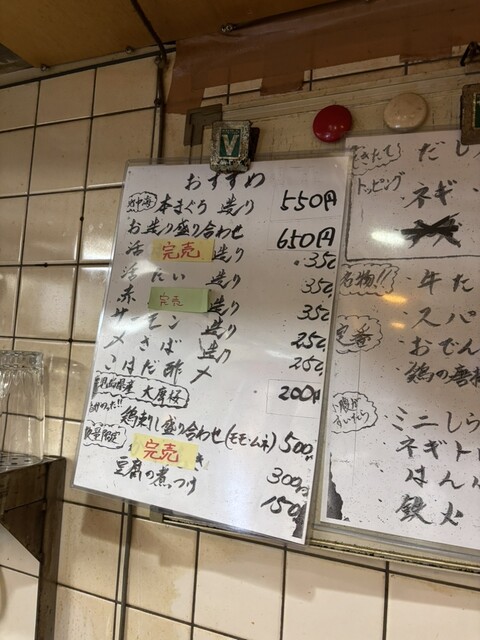 おすすめ
地中海 本まぐろ 造り 550円
お造り盛り合わせ 650円
活 完売 造り 350
活たい 造り 350
赤 完売 造り 350
サーモン 造り 250
〆さば 造り 250
こはだ酢〆 200円
大厚揚
鶏刺し盛り合わせ(モモ・ムネ) 500円
数量限定! 完売 き 300円
豆腐の煮つけ 150
だし
トッピング
ネギ
名物!!
牛た
スパ
定番
おでん
鶏の唐揚
ミニしら
ネギト
はん
鉄火